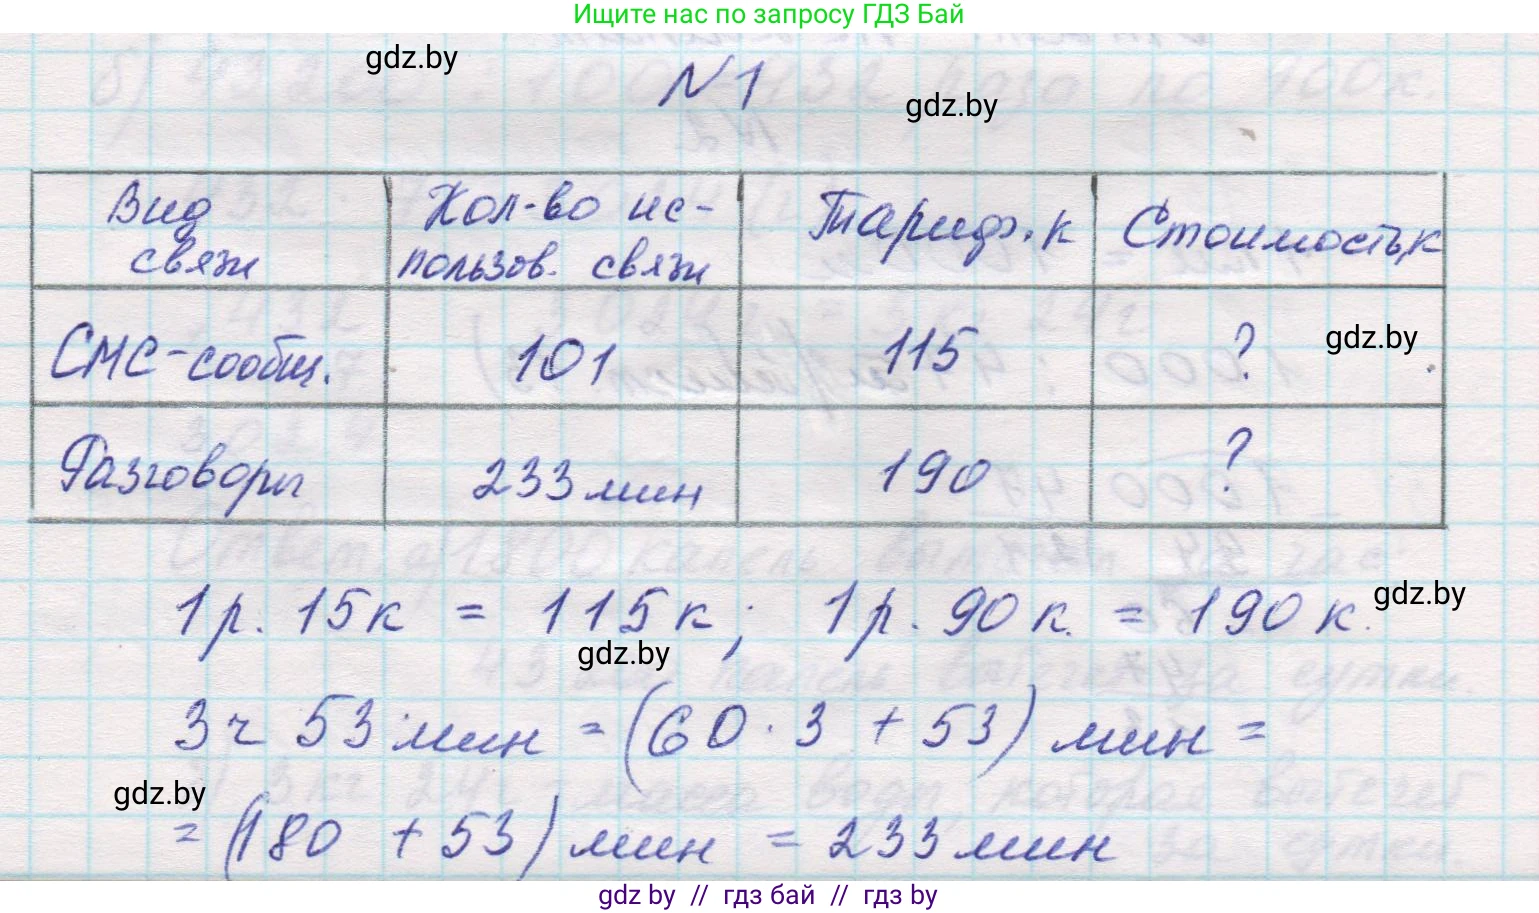 Ищите нас по запросу ГДЗ Бай
gdz.by
N1
gdz.by
Вид связи
Кол-во ис-
пользов. связи
Тариф, к
Стоимость, к
СМС-сообщ.
101
115
?
gdz.by
Разговоры
233 мин
190
?
1 р. 15 к = 115 к; 1 р. 90 к. = 190 к.
gdz.by
gdz.by
3 ч 53 мин = (60 · 3 + 53) мин =
gdz.by
= (180 + 53) мин = 233 мин
gdz.by // гдз бай // гдз by